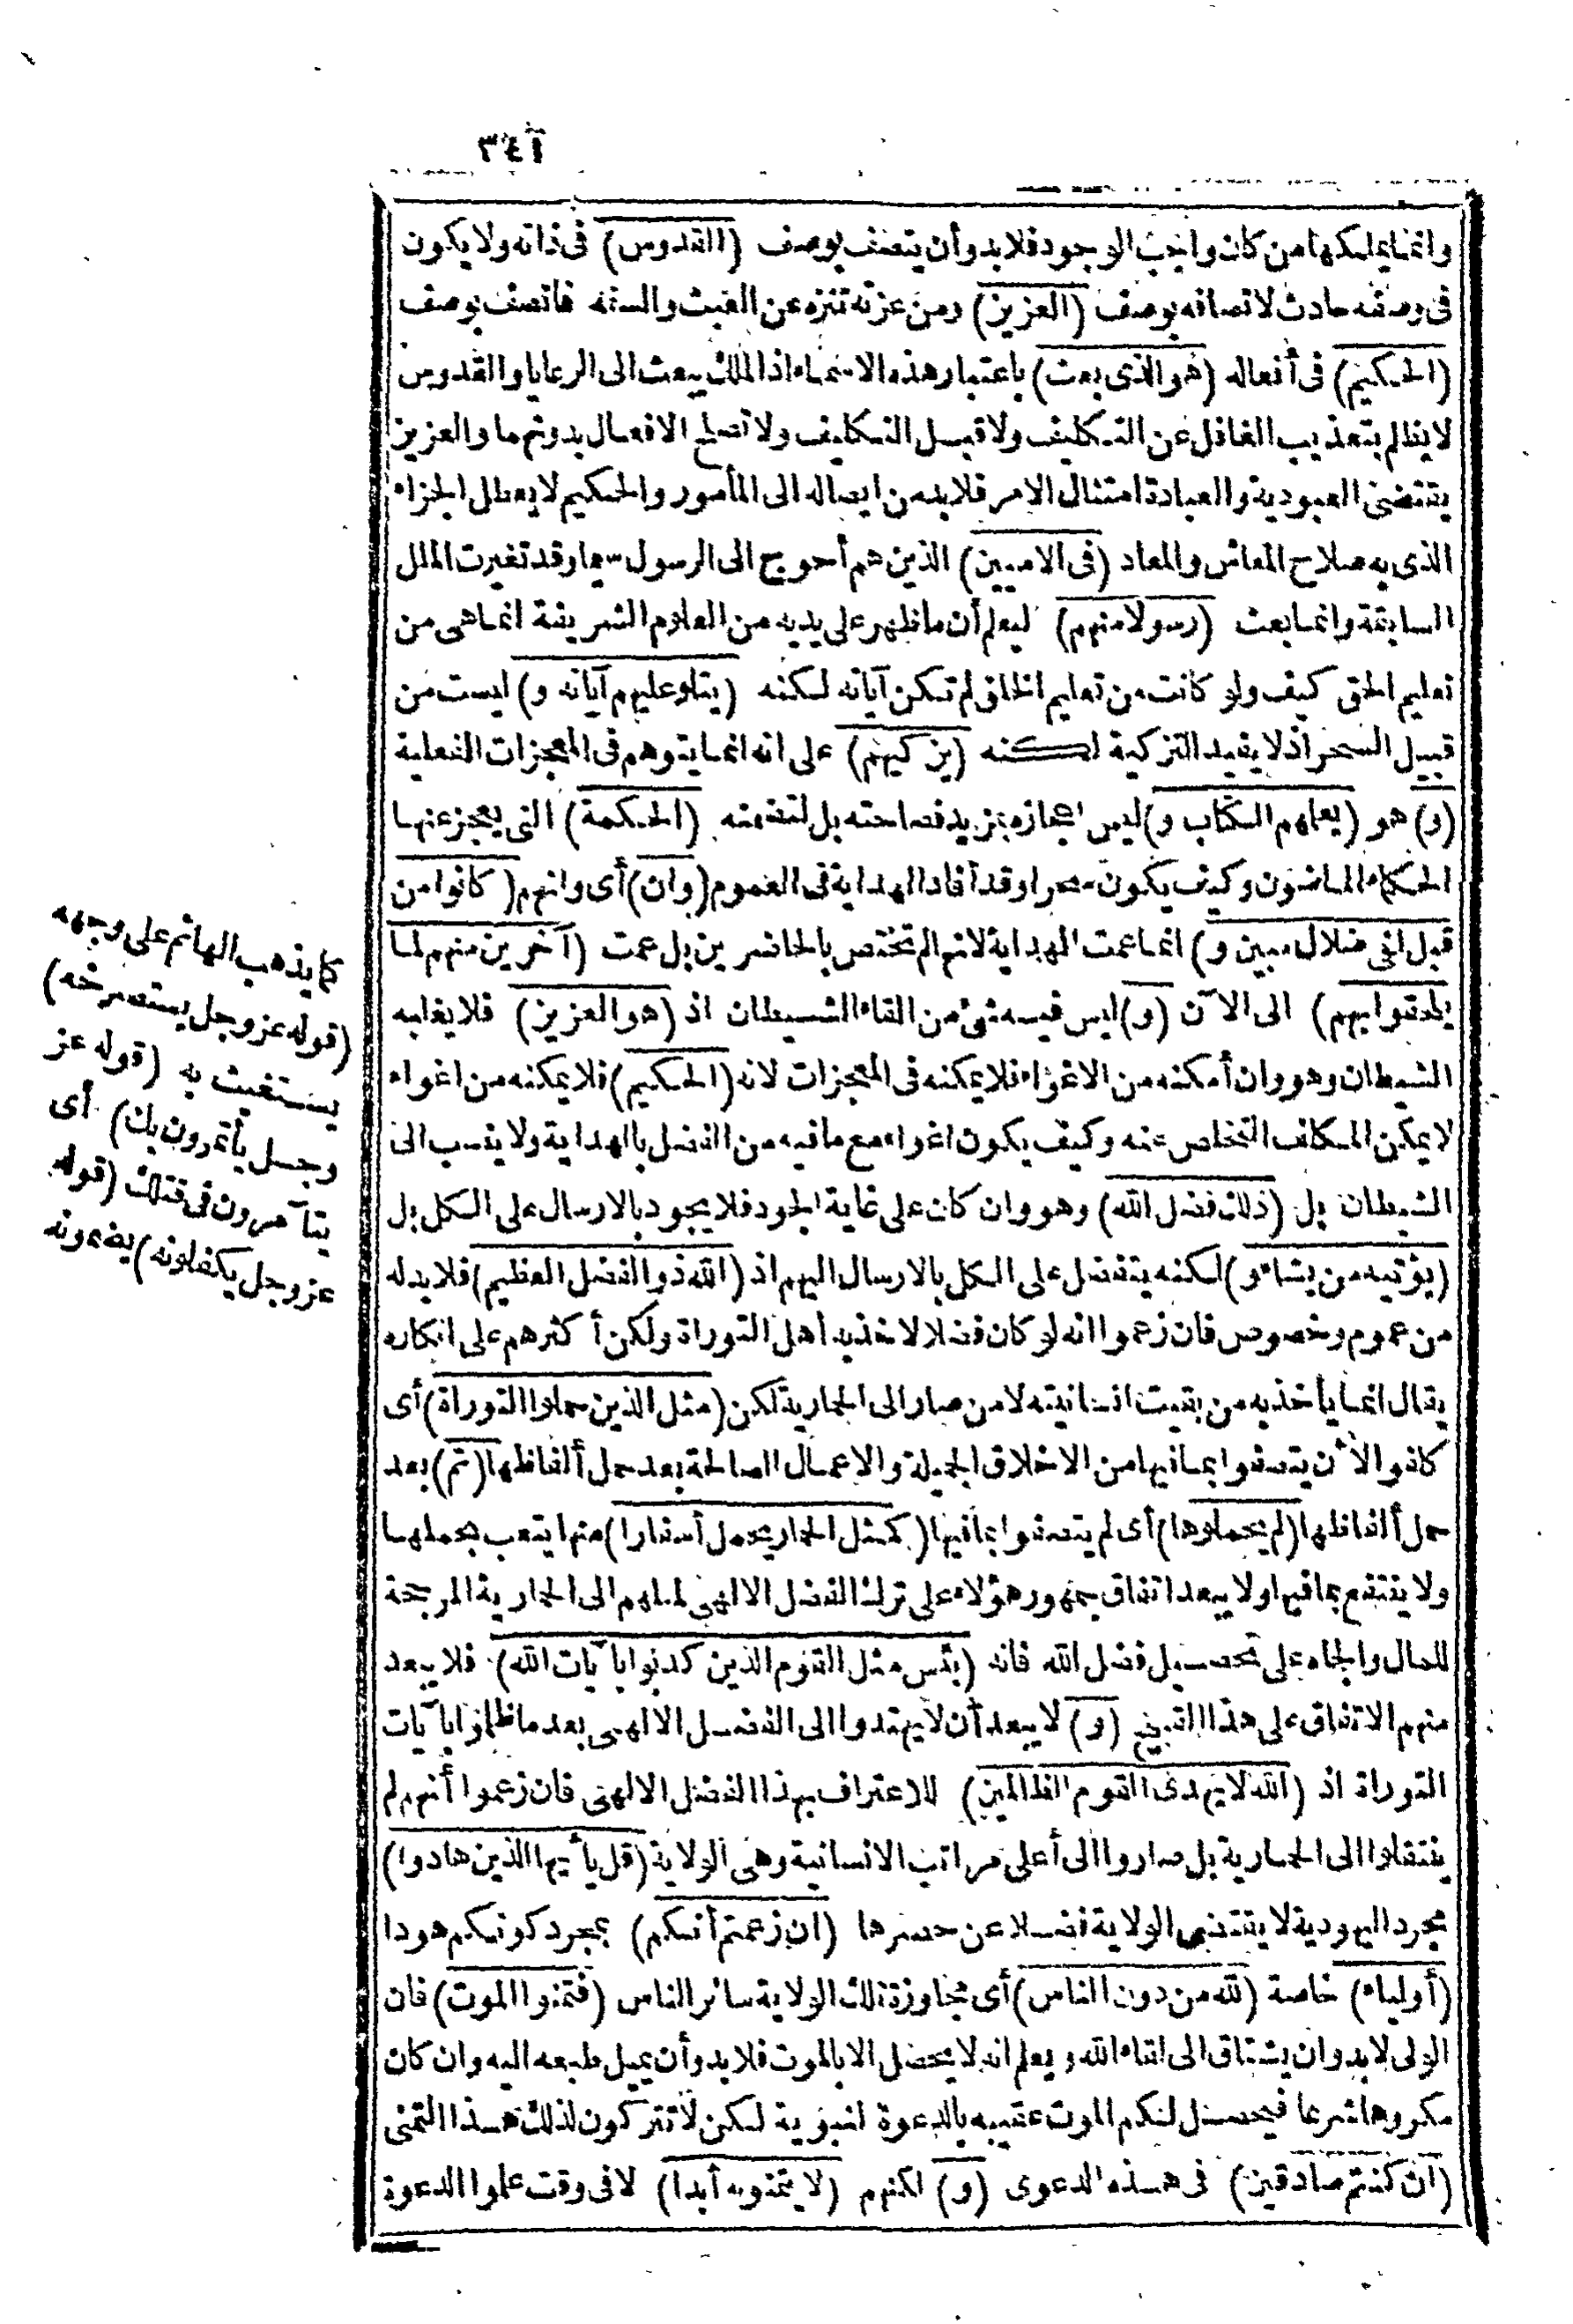 ٣٤٦
وانما يملكها من كان واجب الوجود فلا بد وأن يتصف بوصف (القدوس) فى ذاته ولا يكون
فى وصفه حادث لاتصافه بوصف (العزيز) ومن عزته تنزه عن العبث والسفه فاتصف بوصف
(الحكيم) فى أفعاله (هو الذى بعث) باعتبار هذه الاسماء اذ الملك يبعث الى الرعايا والقدوس
لا يظلم بتعذيب الغافل عن التكليف ولا قبل التكليف ولا تصلح الافعال بدونهما والعزيز
يقتضى العبودية والعبادة امتثال الامر فلا بد من ايصاله الى المأمور والحكيم لا يعطل الجزاء
الذى به صلاح المعاش والمعاد (فى الاميين) الذين هم أحوج الى الرسول سيما وقد تغيرت الملل
السابقة وانما بعث (رسولا منهم) ليعلم أن ما ظهر على يديه من العلوم الشريفة انما هى من
تعليم الحق كيف ولو كانت من تعليم الخلق لم تكن آياته لكنه (يتلو عليهم آياته و) ليست من
قبيل السحر اذ لا يفيد التزكية لكنه (يزكيهم) على انه انما يتوهم فى المعجزات الفعلية
(و) هو (يعلمهم الكتاب و) ليس اعجازه بمزيد فصاحته بل لتضمنه (الحكمة) التى يعجز عنها
الحكماء الماضون وكيف يكون سحرا وقد أفاد الهداية فى العموم (وان) أى وانهم (كانوا من
قبل لفى ضلال مبين و) انما عمت الهداية لانها لم تختص بالحاضرين بل عمت (آخرين منهم لما
يلحقوا بهم) الى الآن (و) ليس فيه شئ من القاء الشيطان اذ (هو العزيز) فلا يغلبه
الشيطان وهو وان أمكنه من الاغواء فلا يمكنه فى المعجزات لانه (الحكيم) فلا يمكنه من اغواء
لا يمكن المكلف التخلص عنه وكيف يكون اغواء مع ما فيه من الفضل بالهداية ولا ينسب الى
الشيطان بل (ذلك فضل الله) وهو وان كان على غاية الجود فلا يجود بالارسال على الكل بل
(يؤتيه من يشاء و) لكنه يتفضل على الكل بالارسال اليهم اذ (الله ذو الفضل العظيم) فلا بد له
من عموم وخصوص فان زعموا انه لو كان فضلا لأخذ به أهل التوراة ولكن أكثرهم على انكاره
يقال انما يأخذ به من بقيت انسانيته لا من صار الى الحمارية لكن (مثل الذين حملوا التوراة) أى
كلفوا الأن يتصفوا بمعانيها من الاخلاق الجميلة والاعمال الصالحة بعد حمل ألفاظها (ثم) بعد
حمل ألفاظها (لم يحملوها) أى لم يتصفوا بما فيها (كمثل الحمار يحمل أسفارا) منها يتعب بحملها
ولا ينتفع بما فيها ولا يبعد اتفاق جمهور هؤلاء على ترك الفضل الالهى لميلهم الى الحمارية المرجحة
للمال والجاه على تحصيل فضل الله فانه (بئس مثل القوم الذين كذبوا بآيات الله) فلا يبعد
منهم الاتفاق على هذا القبيح (و) لا يبعد أن لا يهتدوا الى الفضل الالهى بعد ما ظلموا بآيات
التوراة اذ (الله لا يهدى القوم الظالمين) للاعتراف بهذا الفضل الالهى فان زعموا أنهم لم
ينتقلوا الى الحمارية بل صاروا الى أعلى مراتب الانسانية وهى الولاية (قل يا أيها الذين هادوا)
مجرد اليهودية لا يقتضى الولاية فضلا عن حصرها (ان زعمتم أنكم) بمجرد كونكم هودا
(أولياء) خاصة (لله من دون الناس) أى مجاوزة تلك الولاية سائر الناس (فتمنوا الموت) فان
الولى لا بد وان يشتاق الى لقاء الله ويعلم انه لا يحصل الا بالموت فلا بد وأن يميل طبعه اليه وان كان
مكروها شرعا فيحصل لكم الموت عقيبه بالدعوة النبوية لكن لا تتركون لذلك هذا التمنى
(ان كنتم صادقين) فى هذه الدعوى (و) لكنهم (لا يتمنونه أبدا) لا فى وقت علموا الدعوة
كما يذهب الهائم على وجهه
(قوله عز وجل يستصرخه)
يستغيث به (قوله عز
وجل يأتمرون بك) أى
يتآمرون فى قتلك (قوله
عز وجل يكفلونه) يضمونه